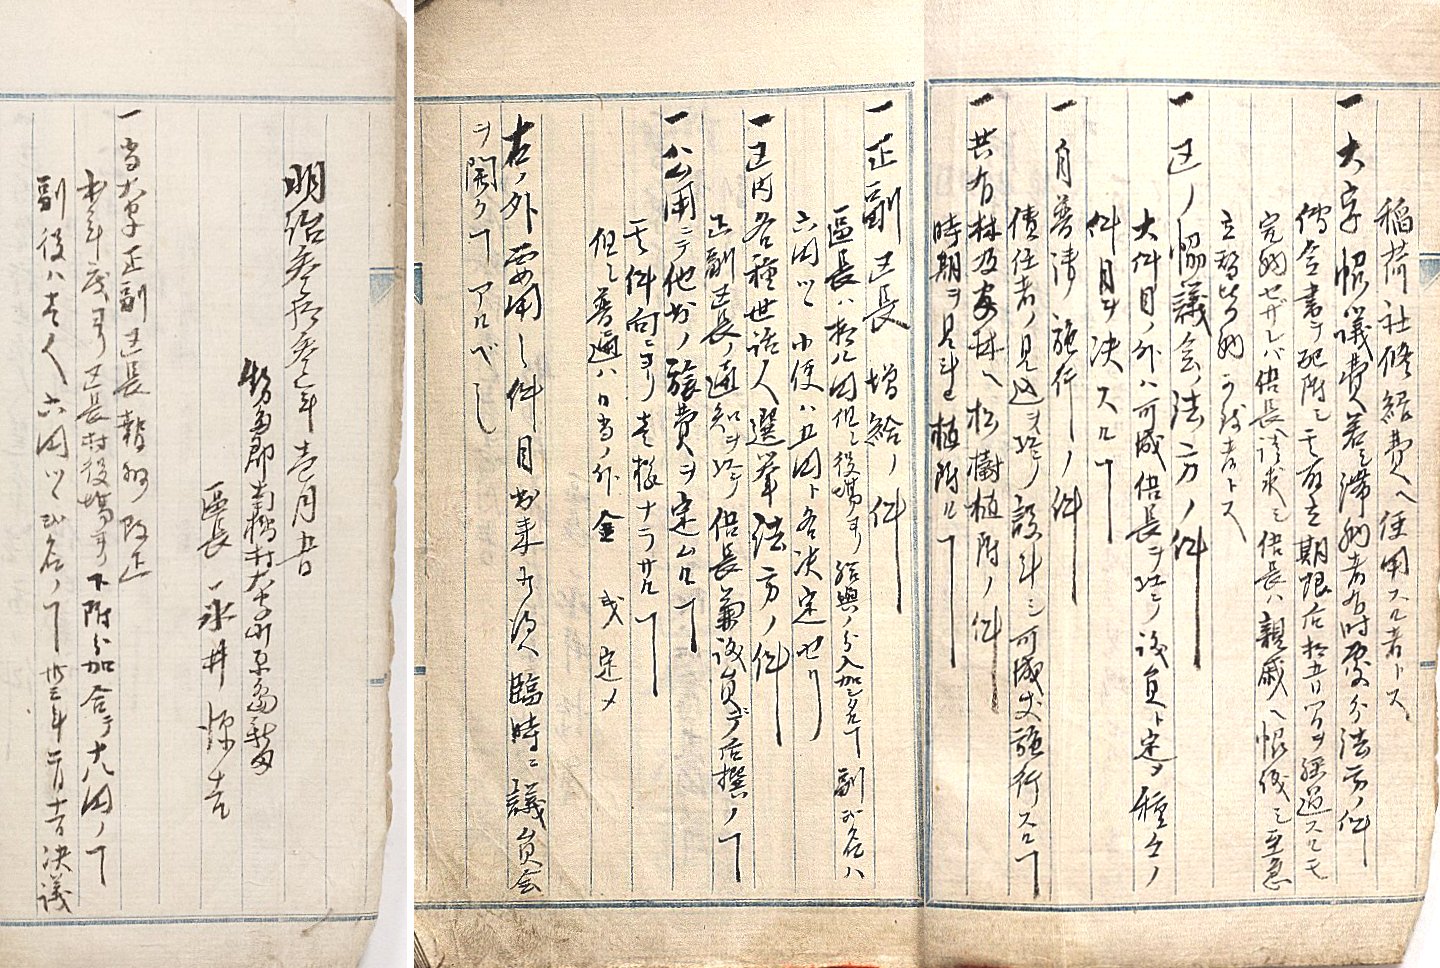 稲荷社修繕費ヘ使用スル者トス
一大字協議費若シ滞納者有時處分法方ノ件
傳令書ヲ配附シ其有立期限后拾五日間ヲ経過スルモ
完納セザレバ伍長ヘ請求シ伍長ハ親戚ヘ懸議シ至急
立替皆納
一区ノ協議会法方ノ件
大件目ノ外ハ可成伍長ヲ以テ議員ト定メ種々ノ
件目ヲ決スルヿ
一自普請施行ノ件
債任者ノ見込ヲ以テ設計シ可成丈施行スルヿ
一共有林及安林ヘ松樹植附ノ件
時期ヲ見計ヒ植附ルヿ
一正副区長増給ノ件
區長ハ拾八円但シ役場ヨリ給與ノ分入加シ名ノヿ副弐名ハ
六円ツヽ小使ハ五円ト各決定セリ
一区内各種世話人選挙法方ノ件
正副区長ノ通知ヲ以テ伍長兼議員ニテ后撰ノヿ
一公用ニテ他出ノ旅費ヲ定ムルヿ
其件向ニヨリ壱様ナラザルヿ
但シ普通ハ日当ノ外金 定メ
右ノ外要用之件目出来候次第臨時ニ議員会
ヲ開クヿアルベシ
明治参拾参年壱月五日
勢多郡南橘村大字川原島新田
區長 永井源吉
一当大字正副区長報酬改正
本年度ヨリ区長村役場ヨリ下附分加合テ十八円ノヿ
副役ハ壱人六円ツヽ弐名ノヿ卅三年一月十一日決議